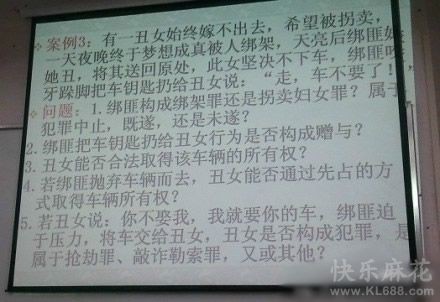 案例3：有一丑女始终嫁不出去，希望被拐卖，
一天夜晚终于梦想成真被人绑架，天亮后绑匪嫌
她丑，将其送回原处，此女坚决不下车，绑匪
牙跺脚把车钥匙扔给丑女说：“走，车不要了！”
问题：1.绑匪构成绑架罪还是拐卖妇女罪？属于
犯罪中止，既遂，还是未遂？
2.绑匪把车钥匙扔给丑女行为是否构成赠与？
3.丑女能否合法取得该车辆的所有权？
4.若绑匪抛弃车辆而去，丑女能否通过先占的方
式取得车辆所有权？
5.若丑女说：你不要我，我就要你的车，绑匪迫
于压力，将车交给丑女，丑女是否构成犯罪，是
属于抢劫罪、敲诈勒索罪，又或其他？
快乐麻花
www.KL688.com